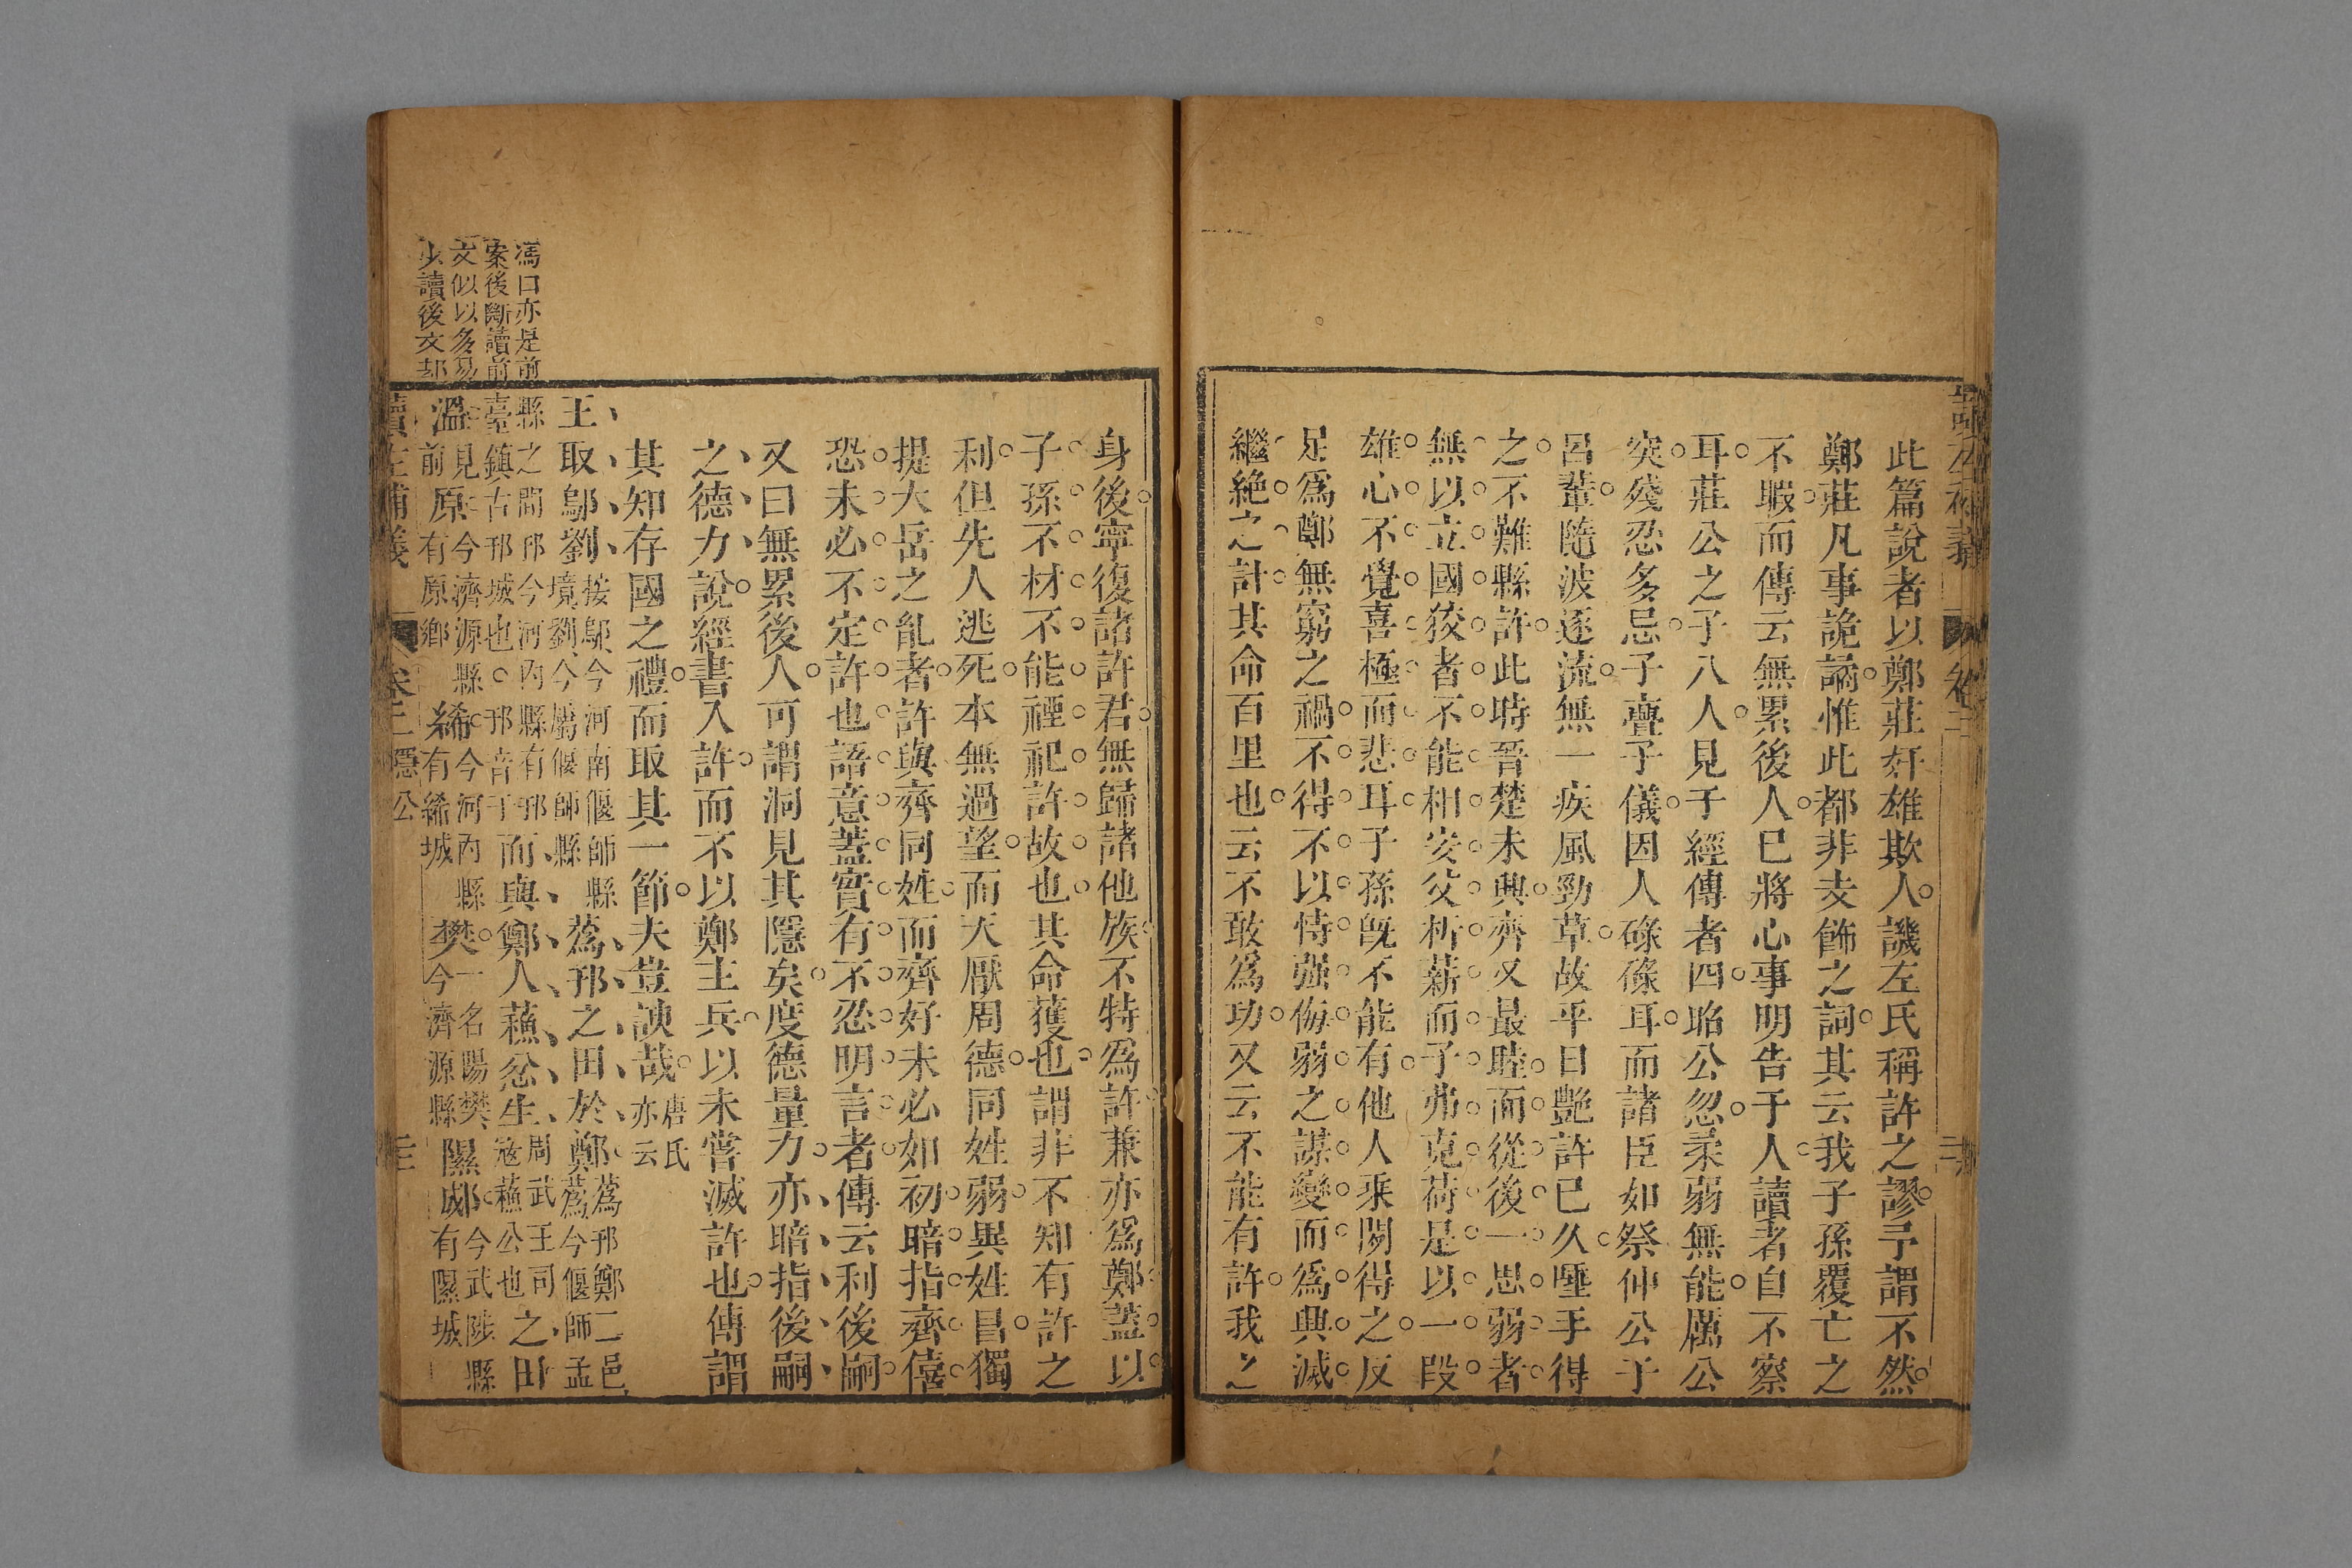 此篇說者以鄭莊奸雄欺人譏左氏稱許之謬予謂不然
鄭莊凡事詭譎惟此都非支飾之詞其云我子孫覆亡之
不暇而傳云無累後人已將心事明告于人讀者自不察
耳莊公之子八人見于經傳者四昭公忽柔弱無能厲公
突殘忍多忌子亹子儀因人碌碌耳而諸臣如祭仲公子
呂輩隨波逐流無一疾風勁草故平日艷許已久唾手得
之不難縣許此時晉楚未興齊又最睦而從後一思弱者
無以立國狡者不能相安父析薪而子弗克荷是以一段
雄心不覺喜極而悲耳子孫旣不能有他人乘間得之反
足爲鄭無窮之禍不得不以恃强侮弱之謀變而爲興滅
繼絶之計其命百里也云不敢爲功又云不能有許我之
身後寧復諸許君無歸諸他族不特爲許兼亦爲鄭蓋以
子孫不材不能禋祀許故也其命獲也謂非不知有許之
利但先人逃死本無過望而天厭周德同姓弱異姓昌獨
提大岳之亂者許與齊同姓而齊好未必如初暗指齊僖
恐未必不定許也語意蓋實有不忍明言者傳云利後嗣
又曰無累後人可謂洞見其隱矣度德量力亦暗指後嗣
之德力說經書入許而不以鄭主兵以未嘗滅許也傳謂
其知存國之禮而取其一節夫豈諛哉唐氏亦云
王取鄔劉接鄔今河南偃師縣境劉今屬偃師縣蔿邘之田於鄭蔿邘鄭二邑蔿今偃師孟
縣之間邘今河內縣有邘臺鎮古邘城也邘音于而與鄭人蘇忿生周武王司寇蘇公也之田
溫見前原今濟源縣有原鄉絺今河內縣有絺城樊一名陽樊今濟源縣隰郕今武陟縣有隰城
馮口亦是前
案後斷讀前
文似以多易
少讀後文却
讀左補義
卷三
隱公